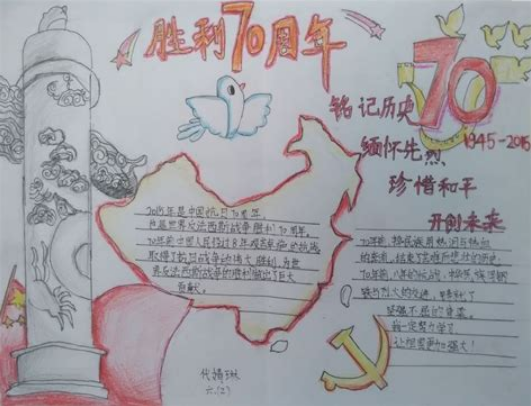 胜利70周年
铭记历史
70
1945-2015
缅怀先烈
珍惜和平
开创未来
2015年是中国抗日70周年,
也是世界反法西斯战争胜利70周年。
70年前中国人民经过8年艰苦卓绝的抗战,
取得了抗日战争的伟大胜利,为世
界反法西斯战争的胜利做出了巨大
贡献。
70年前,
结束了苦难
70年前,八年的抗战,中华民族
坚强不屈的
我一定努力学习
让祖国更加强大!
六(2)